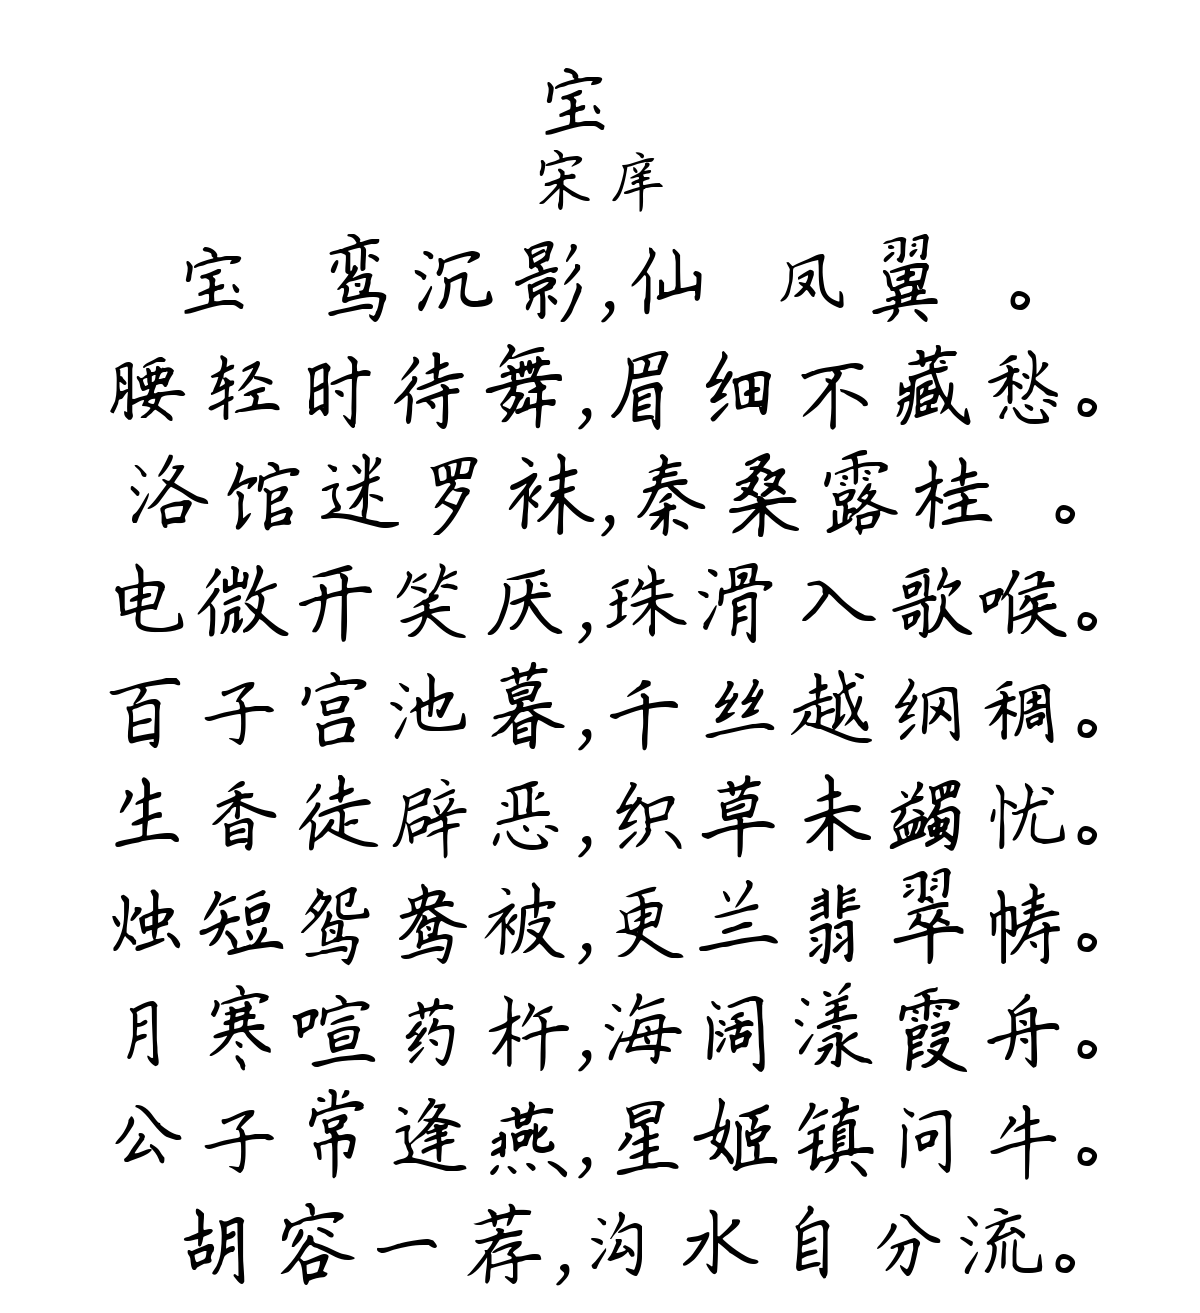 宝
宋庠
宝 鸾沉影,仙 凤翼 。
腰轻时待舞,眉细不藏愁。
洛馆迷罗袜,秦桑露桂 。
电微开笑厌,珠滑入歌喉。
百子宫池暮,千丝越纲稠。
生香徒辟恶,织草未蠲忧。
烛短鸳鸯被,更兰翡翠帱。
月寒喧药杵,海阔漾霞舟。
公子常逢燕,星姬镇问牛。
胡容一荐,沟水自分流。